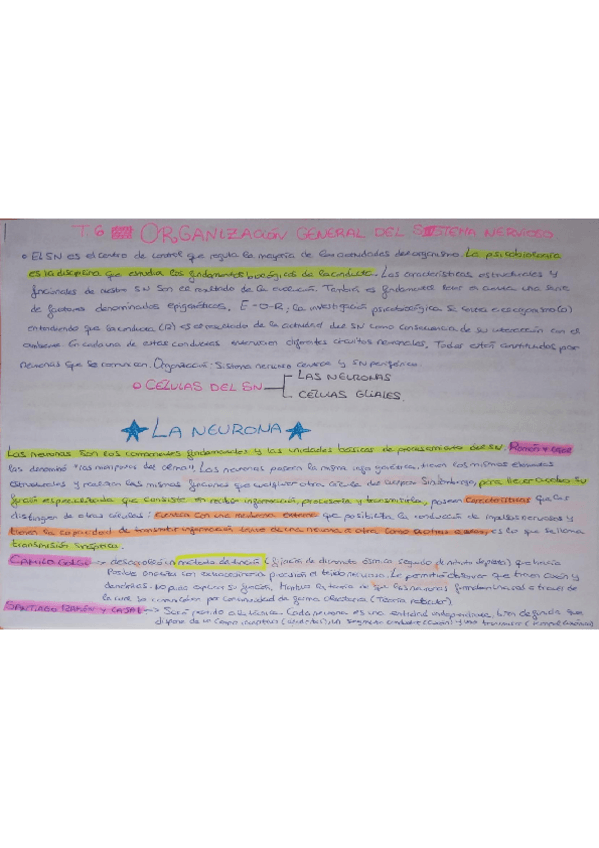 T.6 ORGANIZACIÓN GENERAL DEL SISTEMA NERVIOSO
El SN es el centro de control que regula la mayoría de las actividades del organismo. La psicobiología
es la disciplina que estudia los fundamentos biológicos de la conducta. Las características estructurales y
funcionales de nuestro SN son el resultado de la evolución. También es fundamental tener en cuenta una serie
de factores denominados epigenéticos. E-O-R, la investigación psicobiológica se centra en el organismo (O)
entendiendo que la conducta (R) es el resultado de la actividad del SN como consecuencia de su interacción con el
ambiente. En cada una de estas conductas intervienen diferentes circuitos neuronales. Todos están constituidos por
neuronas que se comunican. Organización: Sistema nervioso central y SN periférico.
CÉLULAS DEL SN
LAS NEURONAS
CÉLULAS GLIALES.
LA NEURONA
Las neuronas son los componentes fundamentales y las unidades básicas de procesamiento del SN. Ramón y Cajal
las denominó "las mariposas del alma". Las neuronas poseen la misma info genética, tienen los mismos elementos
estructurales y realizan las mismas funciones que cualquier otra célula del cuerpo. Sin embargo, para llevar a cabo su
función especializada que consiste en recibir información, procesarla y transmitirla, poseen características que las
distinguen de otras células: cuentan con una membrana externa que posibilita la conducción de impulsos nerviosos y
tienen la capacidad de transmitir información de una neurona a otra como a otras células, es lo que se llama
transmisión sináptica.
CAMILO GOLGI → desarrolló un método de tinción ( de dicromato seguido de nitrato de plata) que hacía
posible con precisión el tejido nervioso. Le permitió observar que tienen axón y
dendritas. No pudo explicar su función. Mantuvo la teoría de que las neuronas formaban una red a través de
la cual se comunican por continuidad de forma (Teoría reticular).
SANTIAGO RAMÓN Y CAJAL → Cada neurona es una entidad independiente, bien definida que
dispone de un campo receptivo (dendritas), un segmento conductor (axón) y uno transmisor